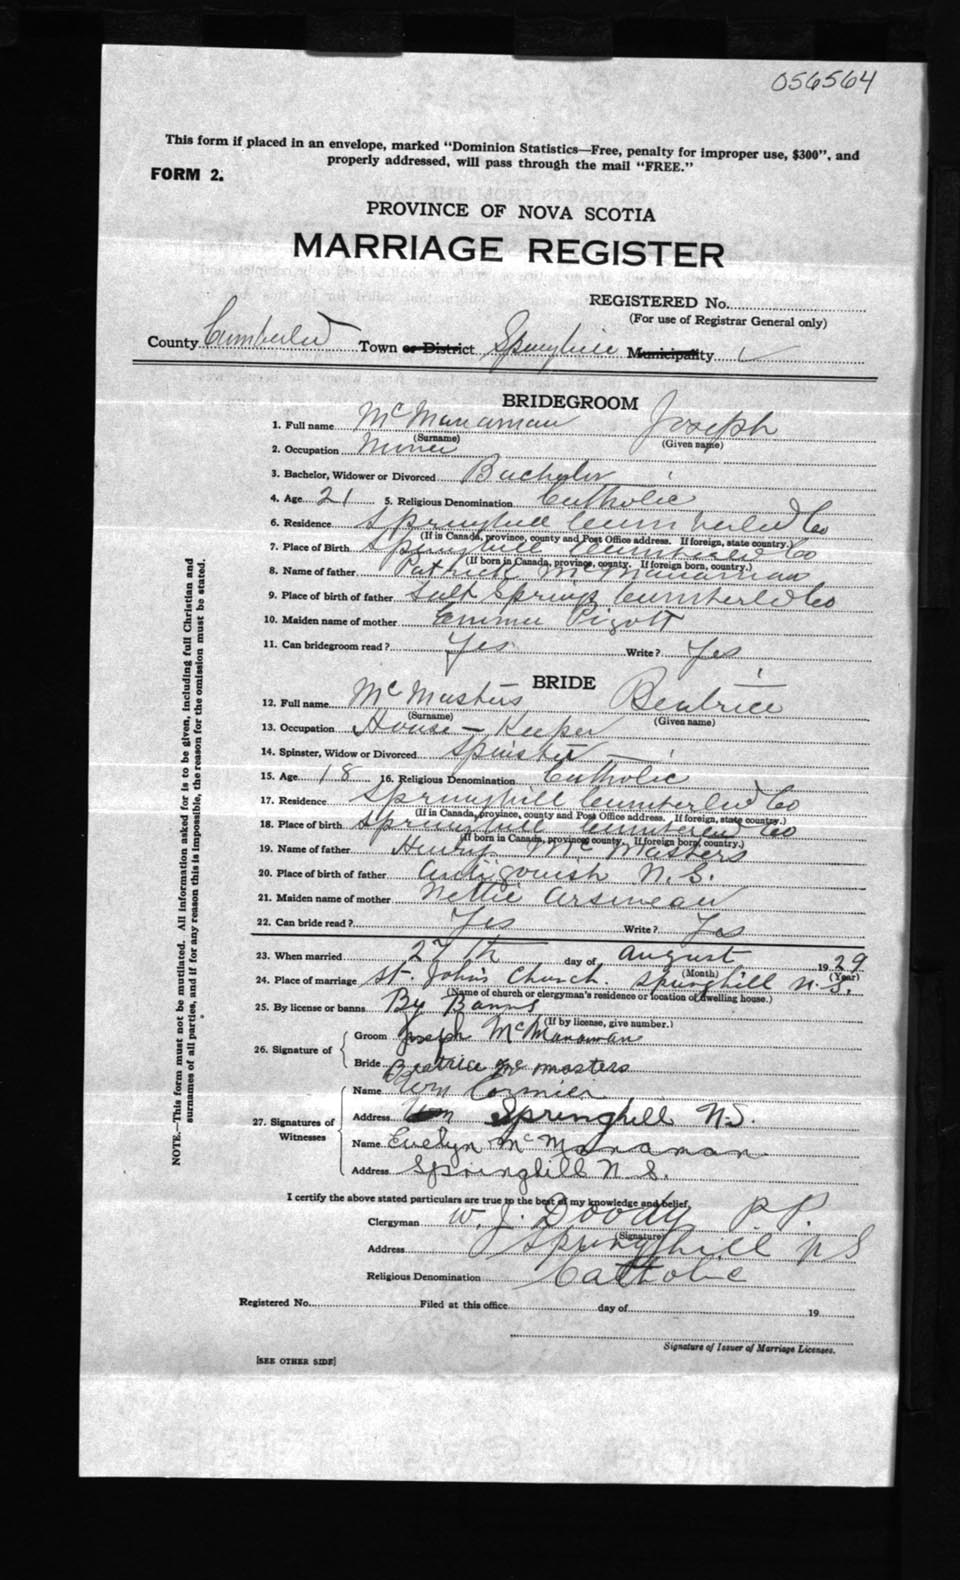 056564
This form if placed in an envelope, marked "Dominion Statistics—Free, penalty for improper use, $300", and
properly addressed, will pass through the mail "FREE."
FORM 2.
PROVINCE OF NOVA SCOTIA
MARRIAGE REGISTER
REGISTERED No.
(For use of Registrar General only)
County Cumberland Town or District Springhill Municipality ✓
BRIDEGROOM
1. Full name McManaman Joseph
(Surname) (Given name)
2. Occupation Miner
3. Bachelor, Widower or Divorced Bachelor
4. Age 21 5. Religious Denomination Catholic
6. Residence Springhill Cumberland Co
(If in Canada, province, county and Post Office address. If foreign, state country.)
7. Place of Birth Springhill Cumberland Co
(If born in Canada, province, county. If foreign born, country.)
8. Name of father Patrick McManaman
9. Place of birth of father Salt Springs Cumberland Co
10. Maiden name of mother Emma Pigott
11. Can bridegroom read? Yes Write? Yes
BRIDE
12. Full name McMasters Beatrice
(Surname) (Given name)
13. Occupation House-Keeper
14. Spinster, Widow or Divorced Spinster
15. Age 18 16. Religious Denomination Catholic
17. Residence Springhill Cumberland Co
(If in Canada, province, county and Post Office address. If foreign, state country.)
18. Place of birth Springhill Cumberland Co
(If born in Canada, province, county. If foreign born, country.)
19. Name of father Henry McMasters
20. Place of birth of father Antigonish N.S.
21. Maiden name of mother Nettie Arsineau
22. Can bride read? Yes Write? Yes
23. When married 27th day of August 1929
(Month) (Year)
24. Place of marriage St. John's Church. Springhill N.S.
(Name of church or clergyman's residence or location of dwelling house.)
25. By license or banns By Banns
(If by license, give number.)
26. Signature of
Groom Joseph McManaman
Bride Beatrice McMasters
27. Signatures of Witnesses
Name Wm Cormier
Address Springhill N.S.
Name Evelyn McManaman
Address Springhill N.S.
I certify the above stated particulars are true to the best of my knowledge and belief,
Clergyman W. J. Doody P.P.
(Signature)
Address Springhill N S
Religious Denomination Catholic
Registered No. Filed at this office day of 19
Signature of Issuer of Marriage Licenses.
[SEE OTHER SIDE]
NOTE.—This form must not be mutilated. All information asked for is to be given, including full Christian and
surnames of all parties, and if for any reason this is impossible, the reason for the omission must be stated.